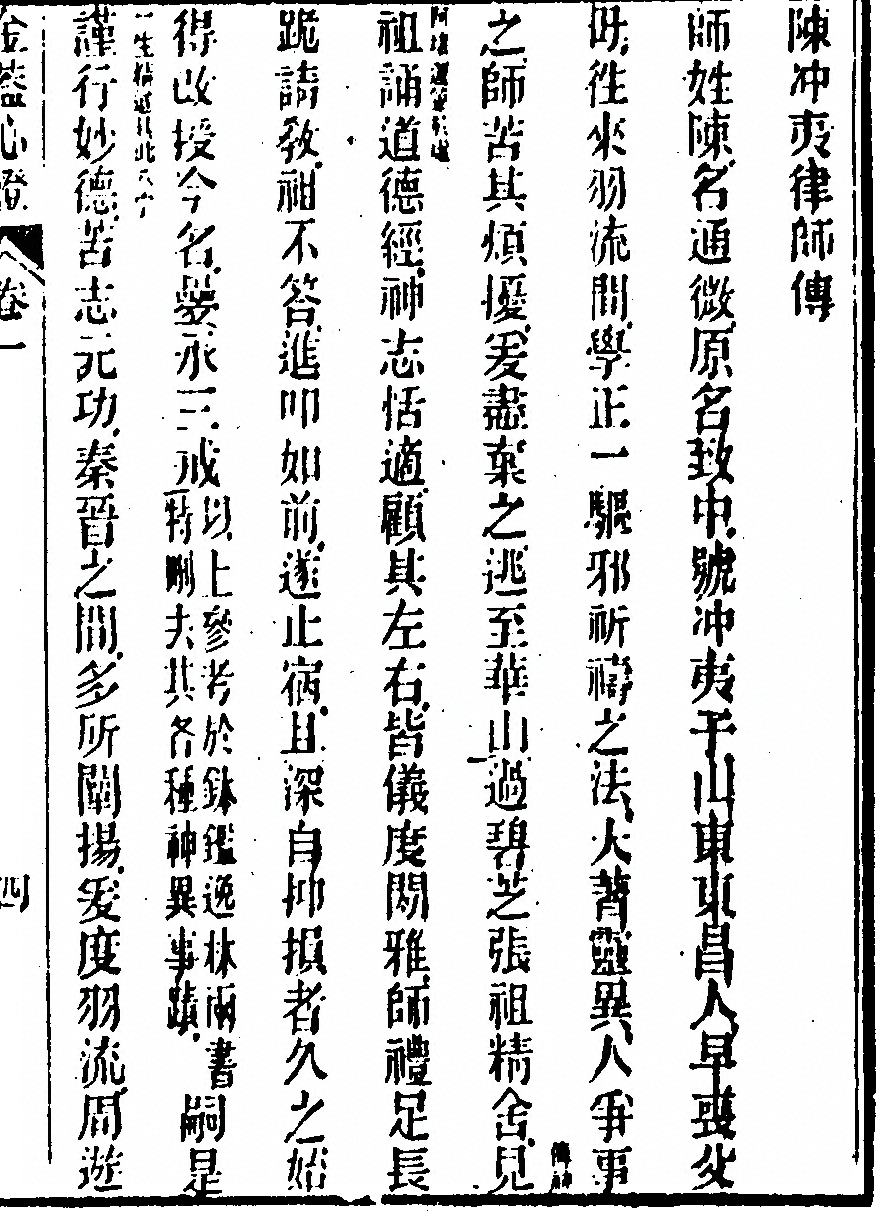 陳冲夷律師傳
師姓陳名通微原名致中號冲夷子山東東昌人早喪父
母徃來羽流間學正一驅邪祈禱之法大著靈異人爭事
之師苦其煩擾爰盡棄之逃至華山過碧芝張祖精舍見
祖誦道德經神志恬適顧其左右皆儀度閑雅師禮足長
跪請教祖不答進叩如前遂止宿且深自抑損者久之始
得改授今名嬰承三戒以上參考於鉢鑑逸林兩書特刪去其各種神異事蹟嗣是
謹行妙德苦志元功秦晉之間多所闡揚爰度羽流周遊
金蓋心燈
卷一
四